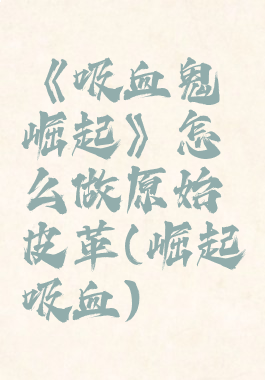 《吸血鬼
崛起》怎
么做原始
皮革(崛起
吸血)